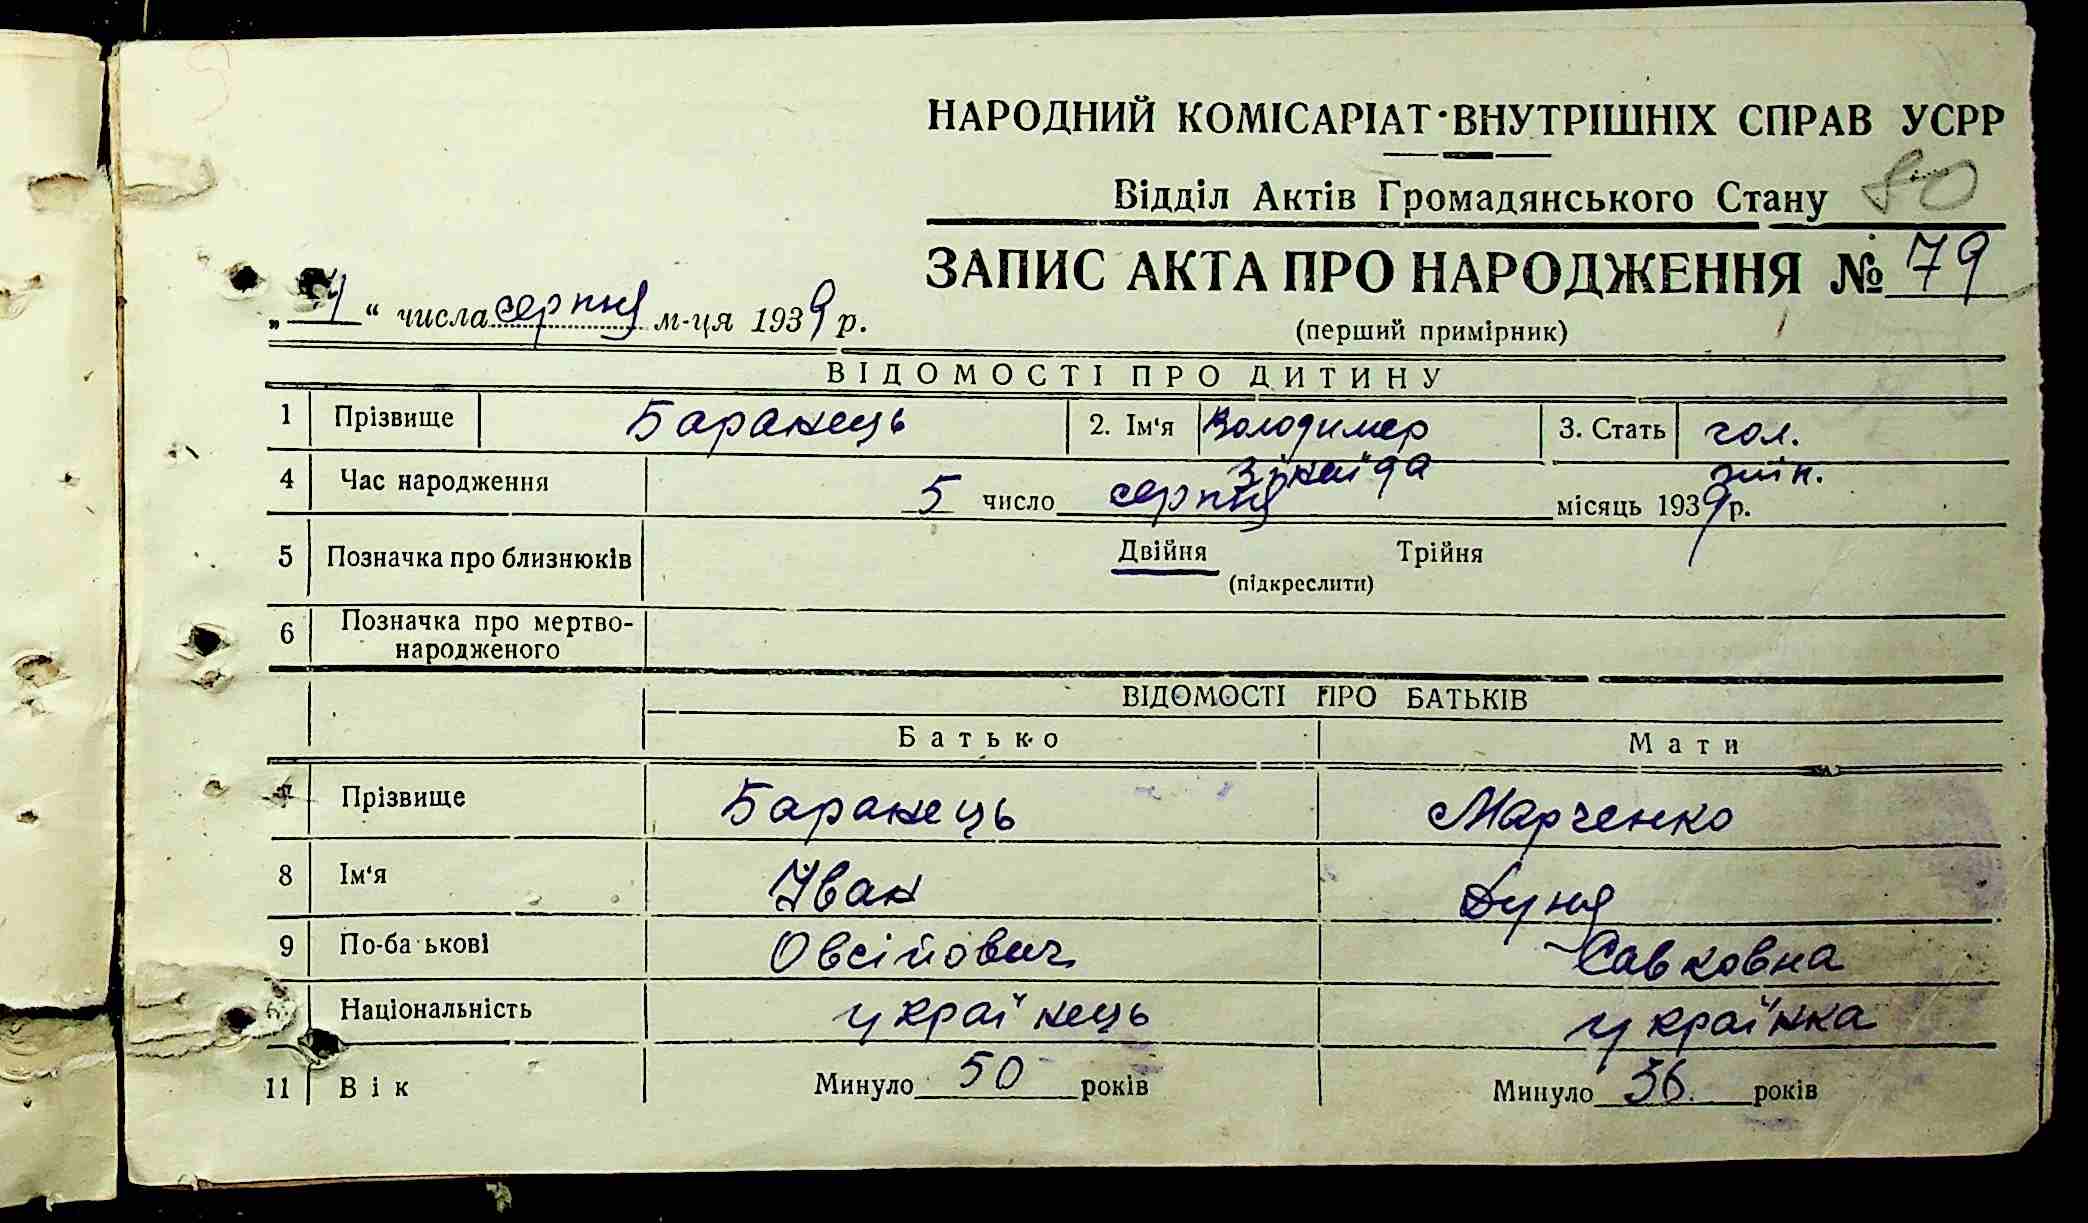 НАРОДНИЙ КОМІСАРІАТ ВНУТРІШНІХ СПРАВ УСРР
Відділ Актів Громадянського Стану 80
ЗАПИС АКТА ПРО НАРОДЖЕННЯ № 79
„ “ числа серпня м-ця 1939 р.
(перший примірник)
ВІДОМОСТІ ПРО ДИТИНУ
1 Прізвище Баранець 2. Ім‘я Володимер 3. Стать чол.
Зінаїда жін.
4 Час народження 5 число серпня місяць 1939 р.
5 Позначка про близнюків Двійня Трійня
(підкреслити)
6 Позначка про мертво-
народженого
ВІДОМОСТІ ПРО БАТЬКІВ
Батько Мати
7 Прізвище Баранець Марченко
8 Ім‘я Іван Дуня
9 По-ба ькові Овсійович Савковна
Національність українець українка
11 Вік Минуло 50 років Минуло 36 років